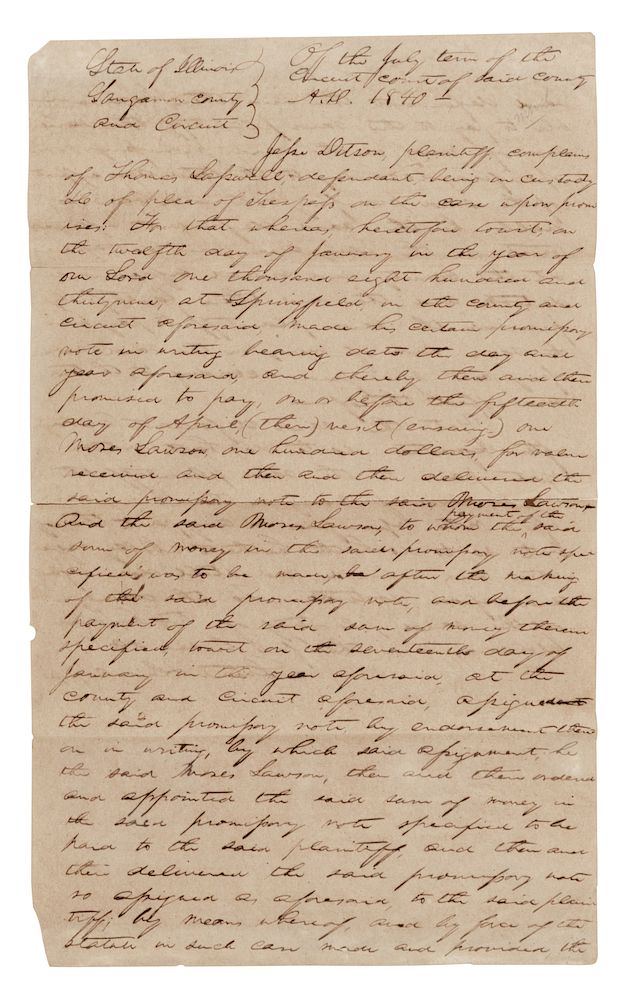 State of Illinois } Of the July term of the
Sangamon county } Circuit court of said County
and Circuit } A.D. 1840 –
Jesse Ditson, plaintiff complains
of Thomas defendant being in custody
&c of plea of Trespass on the case upon prom
ises: For that whereas heretofore towit; on
the twelfth day of January in the year of
our Lord one thousand eight hundred and
thirtynine, at Springfield in the county and
circuit aforesaid made his certain promissory
note in writing bearing date the day and
year aforesaid and thereby then and there
promised to pay, on or before the fifteenth
day of April, (then) next (ensuing) one
Moses Lawson, one hundred dollars, for value
received and then and there delivered the
said promissory note to the said Moses Lawson
And the said Moses Lawson, to whom the payment of the said
sum of money in the said promissory note spe
cified was to be made be after the making
of the said promissory note, and before the
payment of the said sum of money therein
specified, towit on the seventeenth day of
January in the year aforesaid, at the
county and circuit aforesaid, assigned
the said promissory note, by endorsement there
on in writing, by which said assignment, he
the said Moses Lawson, then and there ordered
and appointed the said sum of money in
the said promissory note specified to be
paid to the said plaintiff, and then and
there delivered the said promissory note
so assigned as aforesaid to the said plain
tiff; by means whereof, and by force of the
statute in such case made and provided, the